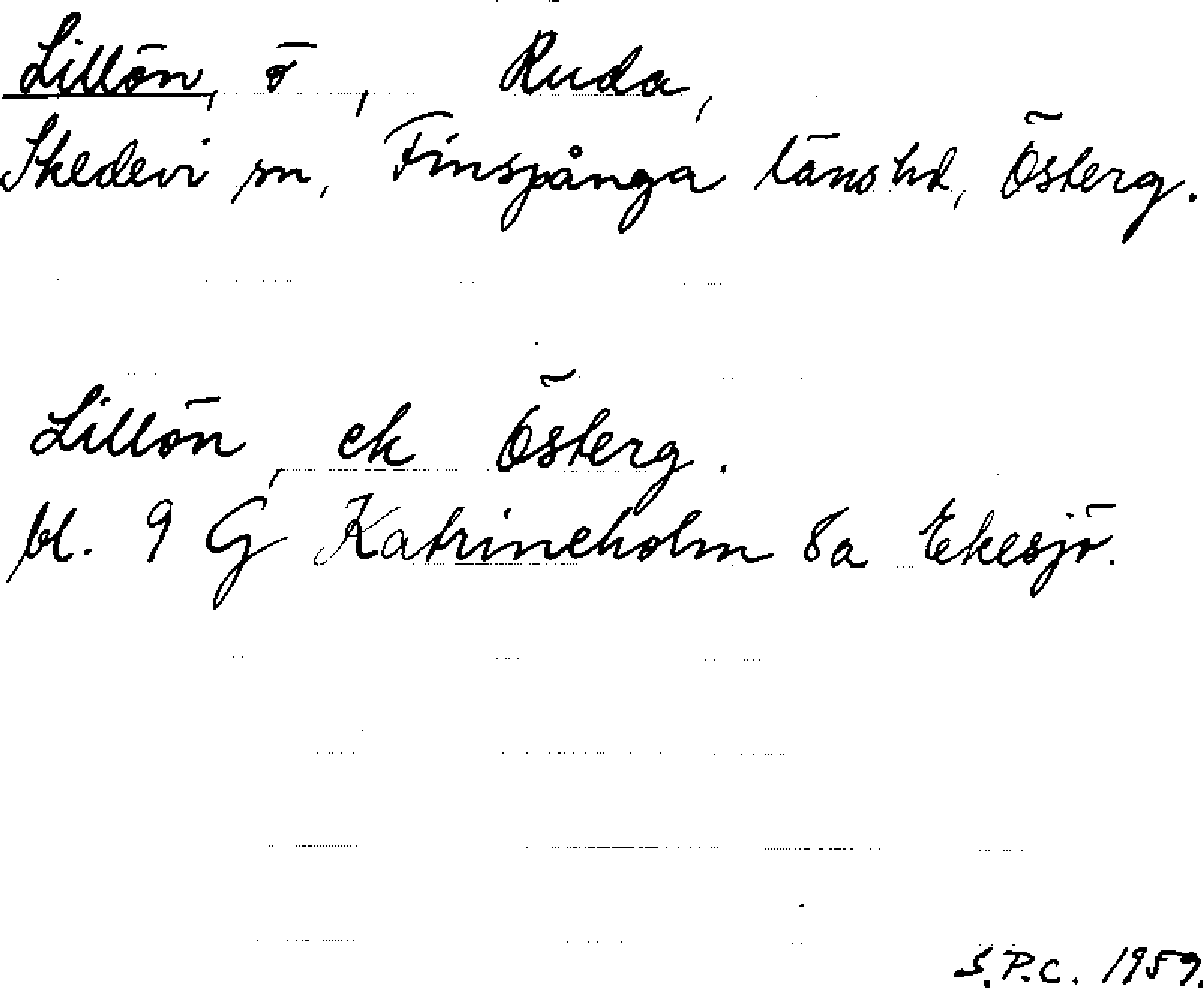 Lillön, ö, Ruda,
Skedevi sn, Finspånga läns hd, Österg.
Lillön, ek Österg.
bl. 9 G Katrineholm 8a Ekesjö.
S.P.C. 1959.